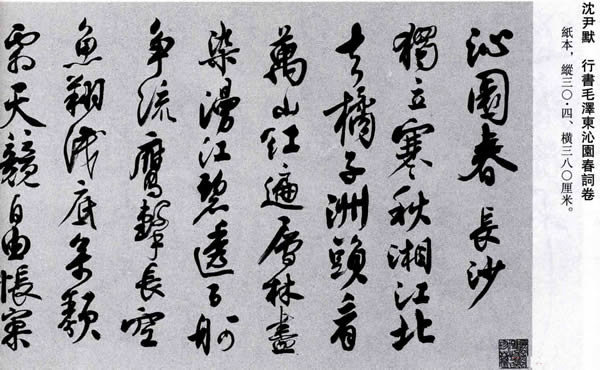 沈尹默　行書毛澤東沁園春詞卷
紙本，縱三〇·四、橫三八〇厘米。
沁園春 長沙
獨立寒秋湘江北
去橘子洲頭看
萬山紅遍層林盡
染漫江碧透百舸
爭流鷹擊長空
魚翔淺底萬類
霜天競自由悵寥